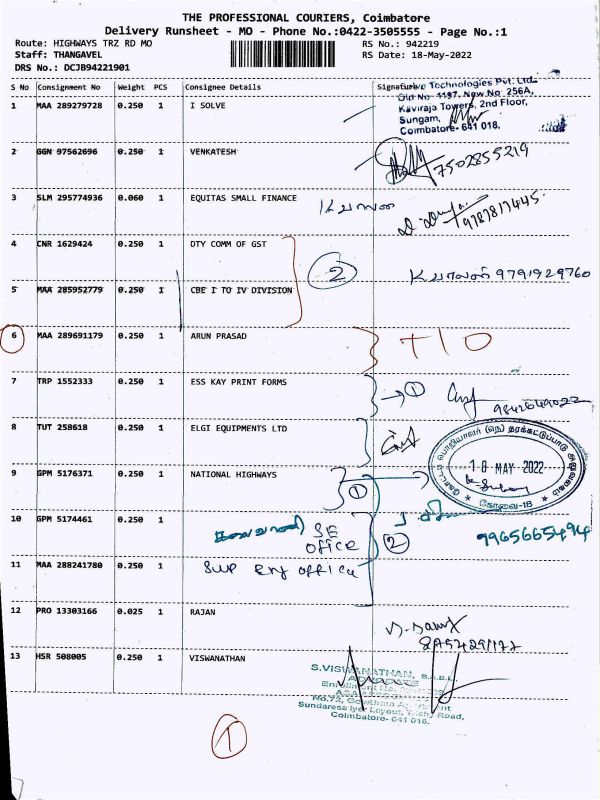 THE PROFESSIONAL COURIERS, Coimbatore
Delivery Runsheet - MO - Phone No.:0422-3505555 - Page No.:1
Route: HIGHWAYS TRZ RD MO
RS No.: 942219
Staff: THANGAVEL
RS Date: 18-May-2022
DRS No.: DCJB94221901
S No Consignment No Weight PCS Consignee Details Signature
Technologies Pvt. Ltd.
Old No. 1197, New No. 256A,
Kaviraja Towers, 2nd Floor,
Sungam,
Coimbatore- 641 018.
1 MAA 289279728 0.250 1 I SOLVE
2 GGN 97562696 0.250 1 VENKATESH
7502855219
3 SLM 295774936 0.060 1 EQUITAS SMALL FINANCE
9787817445
4 CNR 1629424 0.250 1 DTY COMM OF GST
2
9791929760
5 MAA 285952779 0.250 1 CBE I TO IV DIVISION
6 MAA 289691179 0.250 1 ARUN PRASAD
7 TRP 1552333 0.250 1 ESS KAY PRINT FORMS
1
9842649022
8 TUT 258618 0.250 1 ELGI EQUIPMENTS LTD
18 MAY 2022
கோவை-18
9 GPM 5176371 0.250 1 NATIONAL HIGHWAYS
1
10 GPM 5174461 0.250 1
SE
office
2
9965665494
11 MAA 288241780 0.250 1
office
12 PRO 13303166 0.025 1 RAJAN
13 HSR 508005 0.250 1 VISWANATHAN
S.VISWANATHAN, B.A.B.L
No.72, Gowtham
Sundaresa Iyer Layout, Trichy Road,
Coimbatore- 641 018.
1